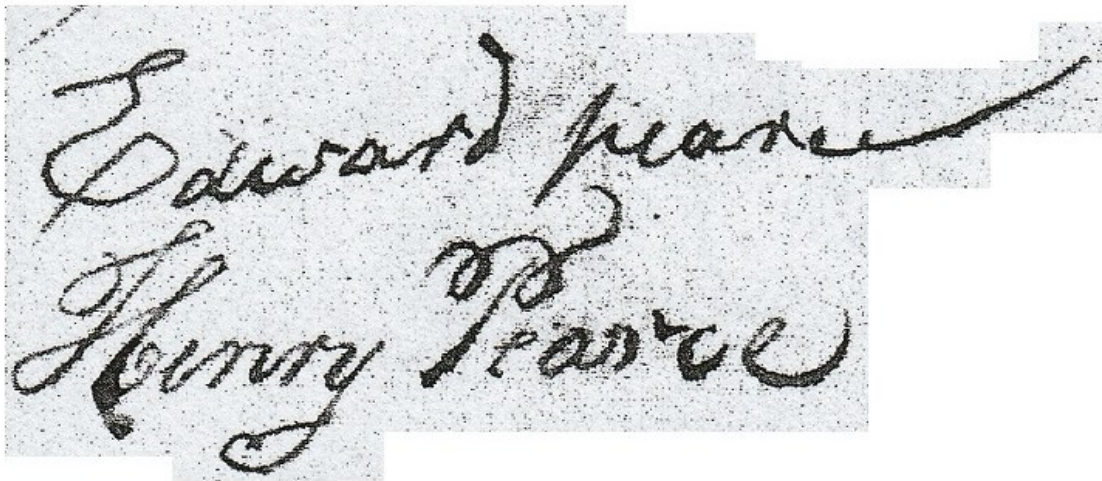 Edward pearce
Henry Pearce